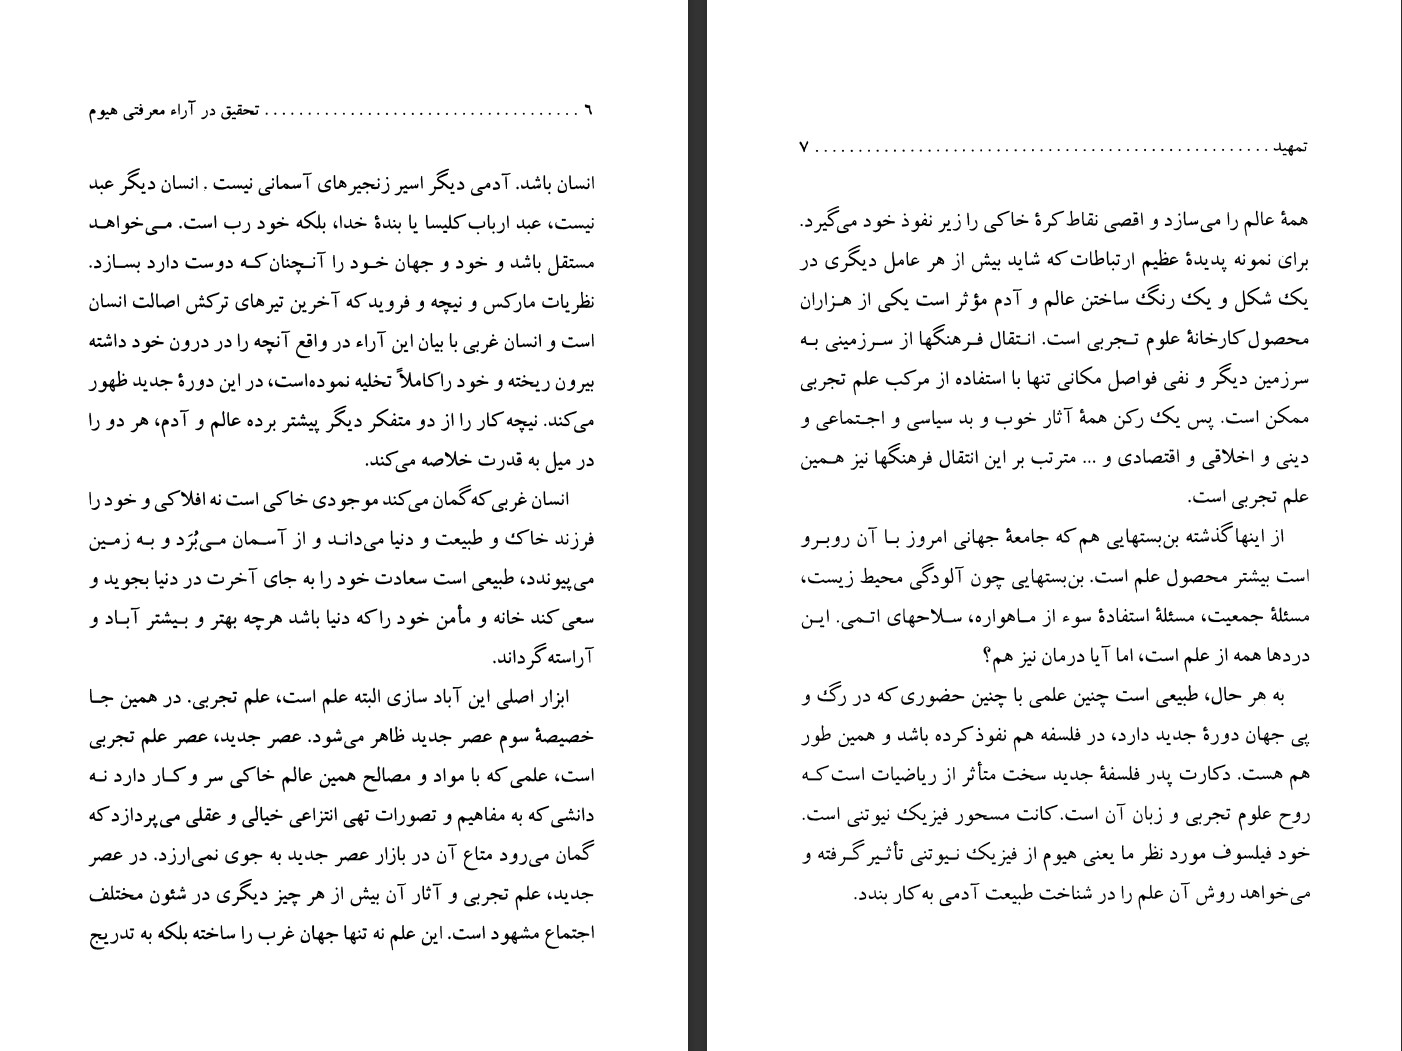 ٦ .................................... تحقیق در آراء معرفتی هیوم
انسان باشد. آدمی دیگر اسیر زنجیرهای آسمانی نیست . انسان دیگر عبد
نیست، عبد ارباب کلیسا یا بندهٔ خدا، بلکه خود رب است. می‌خواهد
مستقل باشد و خود و جهان خود را آنچنان که دوست دارد بسازد.
نظریات مارکس و نیچه و فروید که آخرین تیرهای ترکش اصالت انسان
است و انسان غربی با بیان این آراء در واقع آنچه را در درون خود داشته
بیرون ریخته و خود را کاملاً تخلیه نموده‌است، در این دورهٔ جدید ظهور
می‌کند. نیچه کار را از دو متفکر دیگر پیشتر برده عالم و آدم، هر دو را
در میل به قدرت خلاصه می‌کند.
انسان غربی که گمان می‌کند موجودی خاکی است نه افلاکی و خود را
فرزند خاک و طبیعت و دنیا می‌داند و از آسمان می‌بُرَد و به زمین
می‌پیوندد، طبیعی است سعادت خود را به جای آخرت در دنیا بجوید و
سعی کند خانه و مأمن خود را که دنیا باشد هرچه بهتر و بیشتر آباد و
آراسته گرداند.
ابزار اصلی این آباد سازی البته علم است، علم تجربی. در همین جا
خصیصهٔ سوم عصر جدید ظاهر می‌شود. عصر جدید، عصر علم تجربی
است، علمی که با مواد و مصالح همین عالم خاکی سر و کار دارد نه
دانشی که به مفاهیم و تصورات تهی انتزاعی خیالی و عقلی می‌پردازد که
گمان می‌رود متاع آن در بازار عصر جدید به جوی نمی‌ارزد. در عصر
جدید، علم تجربی و آثار آن بیش از هر چیز دیگری در شئون مختلف
اجتماع مشهود است. این علم نه تنها جهان غرب را ساخته بلکه به تدریج
تمهید .................................................... ۷
همهٔ عالم را می‌سازد و اقصی نقاط کرهٔ خاکی را زیر نفوذ خود می‌گیرد.
برای نمونه پدیدهٔ عظیم ارتباطات که شاید بیش از هر عامل دیگری در
یک شکل و یک رنگ ساختن عالم و آدم مؤثر است یکی از هزاران
محصول کارخانهٔ علوم تجربی است. انتقال فرهنگها از سرزمینی به
سرزمین دیگر و نفی فواصل مکانی تنها با استفاده از مرکب علم تجربی
ممکن است. پس یک رکن همهٔ آثار خوب و بد سیاسی و اجتماعی و
دینی و اخلاقی و اقتصادی و ... مترتب بر این انتقال فرهنگها نیز همین
علم تجربی است.
از اینها گذشته بن‌بستهایی هم که جامعهٔ جهانی امروز با آن روبرو
است بیشتر محصول علم است. بن‌بستهایی چون آلودگی محیط زیست،
مسئلهٔ جمعیت، مسئلهٔ استفادهٔ سوء از ماهواره، سلاحهای اتمی. این
دردها همه از علم است، اما آیا درمان نیز هم؟
به هر حال، طبیعی است چنین علمی با چنین حضوری که در رگ و
پی جهان دورهٔ جدید دارد، در فلسفه هم نفوذ کرده باشد و همین طور
هم هست. دکارت پدر فلسفهٔ جدید سخت متأثر از ریاضیات است که
روح علوم تجربی و زبان آن است. کانت مسحور فیزیک نیوتنی است.
خود فیلسوف مورد نظر ما یعنی هیوم از فیزیک نیوتنی تأثیر گرفته و
می‌خواهد روش آن علم را در شناخت طبیعت آدمی به کار بندد.